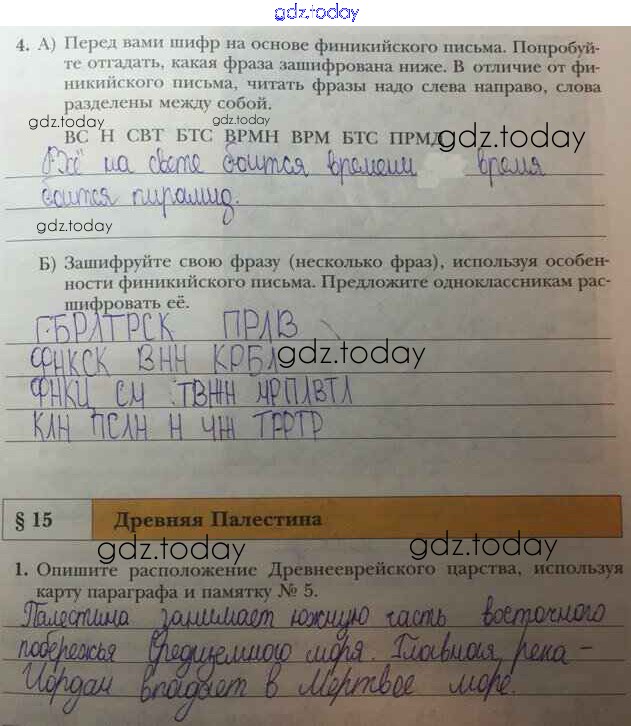 gdz.today
4. А) Перед вами шифр на основе финикийского письма. Попробуй-
те отгадать, какая фраза зашифрована ниже. В отличие от фи-
никийского письма, читать фразы надо слева направо, слова
разделены между собой.
gdz.today gdz.today
ВС Н СВТ БТС ВРМН ВРМ БТС ПРМД gdz.today
Всё на свете боится времени время
боится пирамид.
gdz.today
Б) Зашифруйте свою фразу (несколько фраз), используя особен-
ности финикийского письма. Предложите одноклассникам рас-
шифровать её.
Г.БРЛТРСК ПРЛВ
ФНКСК ВНН КРБЛ gdz.today
ФНКЦ СМ ТВЖН ЧРПЛВТЛ
КЛН ПСЛН Н ЧЖ ТРРТР
§ 15 Древняя Палестина
gdz.today gdz.today
1. Опишите расположение Древнееврейского царства, используя
карту параграфа и памятку № 5.
Палестина занимает южную часть восточного
побережья Средиземного моря. Главная река –
Иордан впадает в Мертвое море.